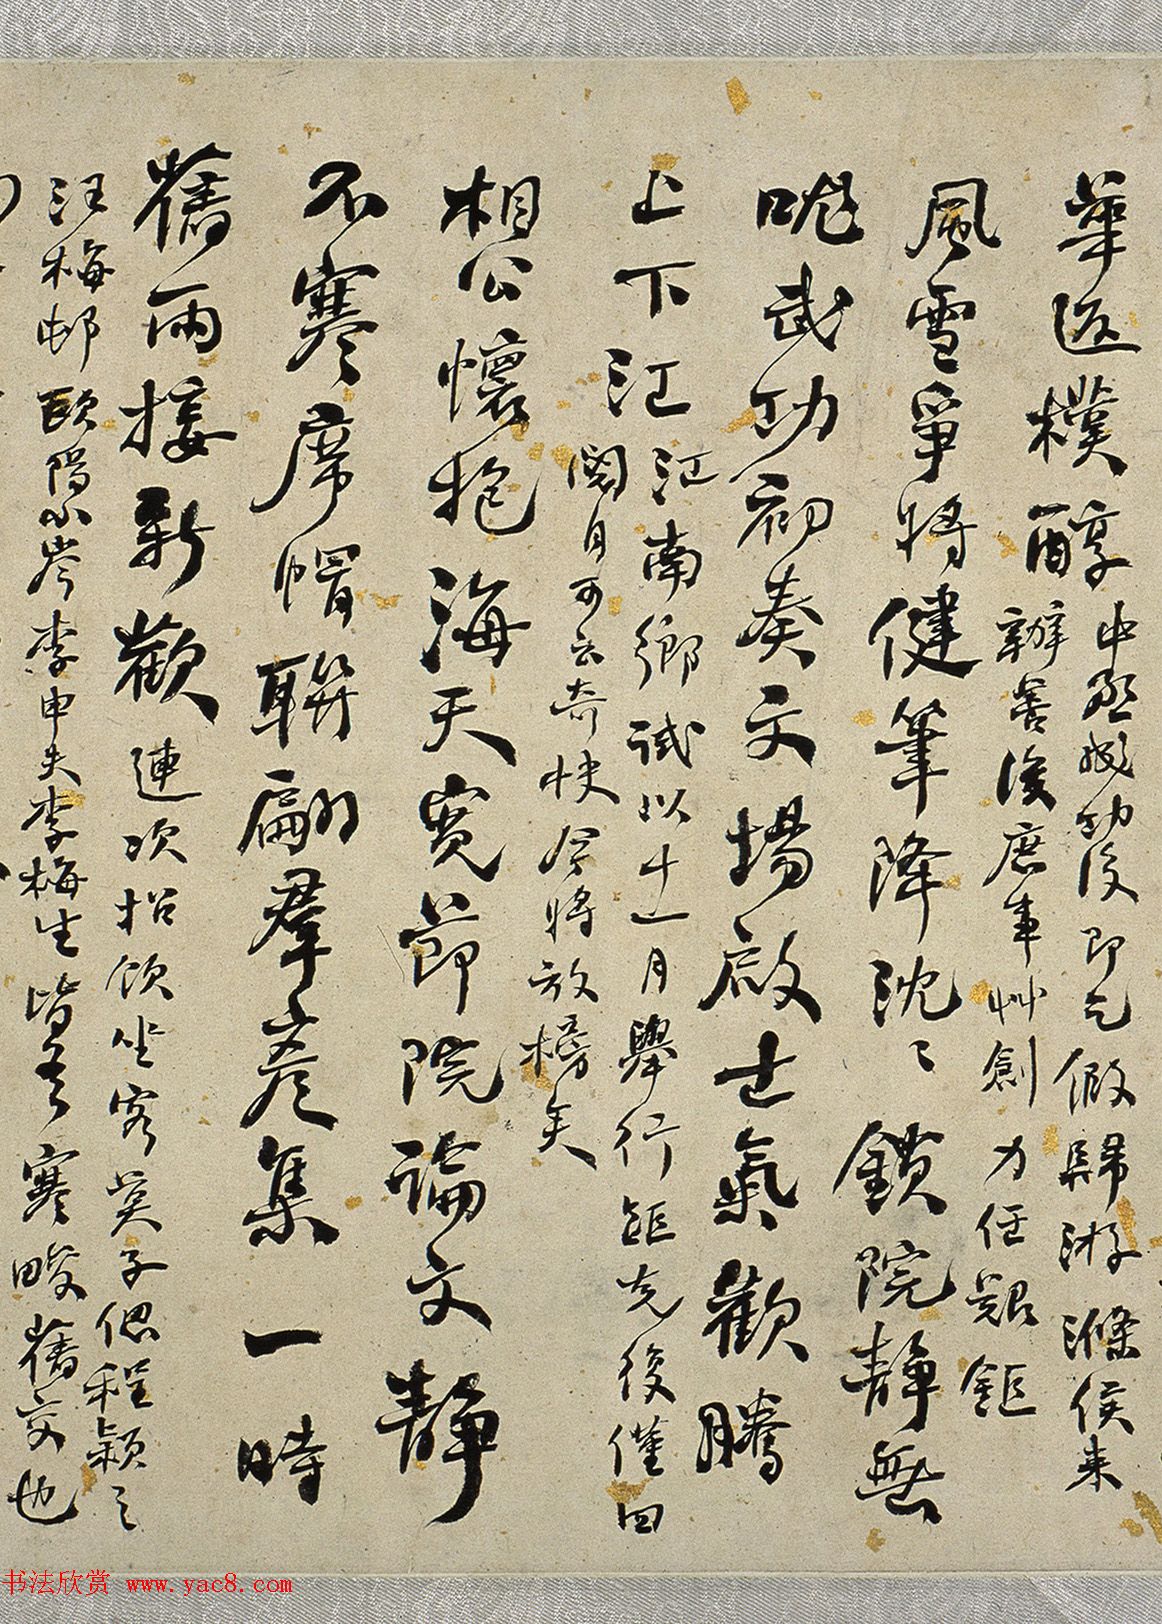 華返樸醇 中丞成功後即乞假歸游滁侯來
辦善後庶事艸創力任艱鉅
風雪爭將健筆降沈沈鎖院靜無
哤武功初奏文場啟士氣歡騰
上下江 江南鄉試以十一月舉行距克復僅四
閱月可云奇快今將放榜矣
相公懷抱海天寬節院論文靜
不寒席帽聯翩羣彥集一時
舊雨接新歡 連次招飲坐客莫子偲程穎之
汪梅邨歐陽小岑李申夫李梅生皆吾寒畯舊交也
书法欣赏 www.yac8.com